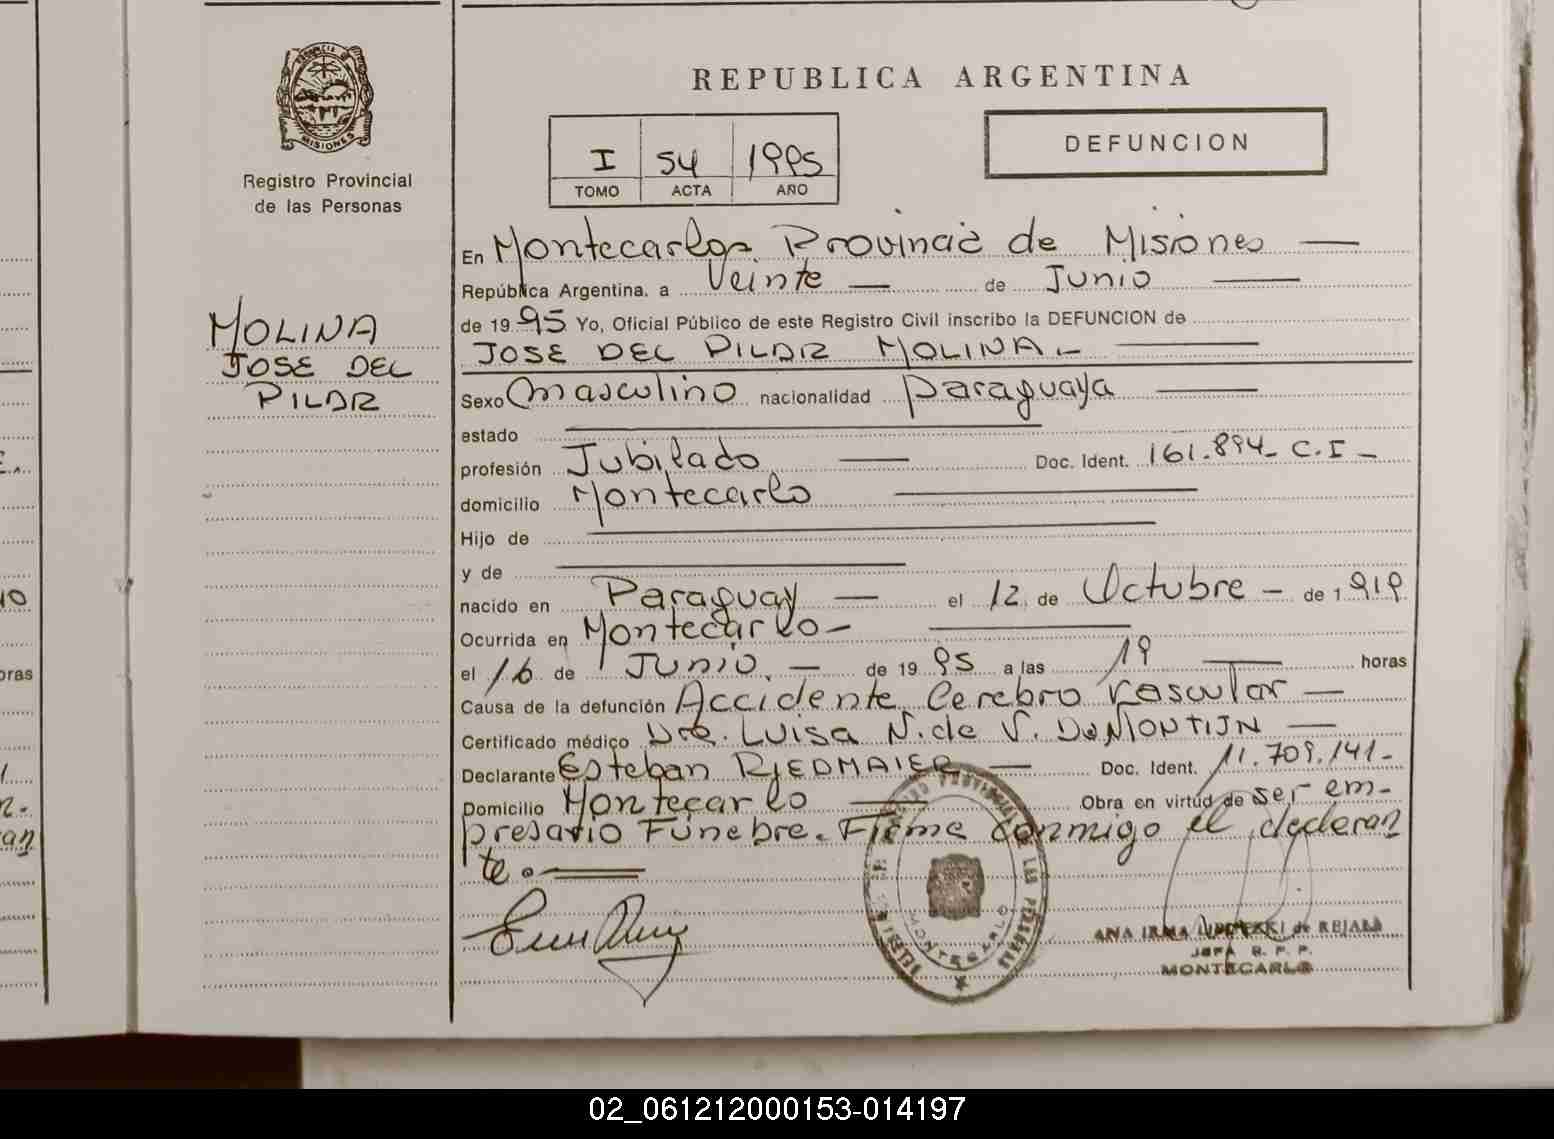 PROVINCIA DE
MISIONES
Registro Provincial
de las Personas
MOLINA
JOSE DEL
PILAR
REPUBLICA ARGENTINA
DEFUNCION
I 54 1995
TOMO ACTA AÑO
En Montecarlos Provincia de Misiones
República Argentina, a Veinte de Junio
de 19 95 Yo, Oficial Público de este Registro Civil inscribo la DEFUNCION de
JOSE DEL PILAR MOLINA.-
Sexo masculino nacionalidad paraguaya
estado
profesión Jubilado Doc. Ident. 161.894- C.I-
domicilio Montecarlo
Hijo de
y de
nacido en Paraguay el 12 de Octubre - de 1 919
Ocurrida en Montecarlo-
el 16 de JUNIO. de 19 95 a las 19 horas
Causa de la defunción Accidente Cerebro Vascular
Certificado médico Dra. Luisa N. de V. DeMONTIJN
Declarante Esteban RIEDMAIER Doc. Ident. 11.709.141-
Domicilio Montecarlo Obra en virtud de ser em-
presario Fúnebre. Firma conmigo el declaran
te.
REGISTRO PROVINCIAL DE LAS PERSONAS
MONTECARLO
ANA IRMA de REJALA
JEFA R. P. P.
MONTECARLO
horas
02_061212000153-014197